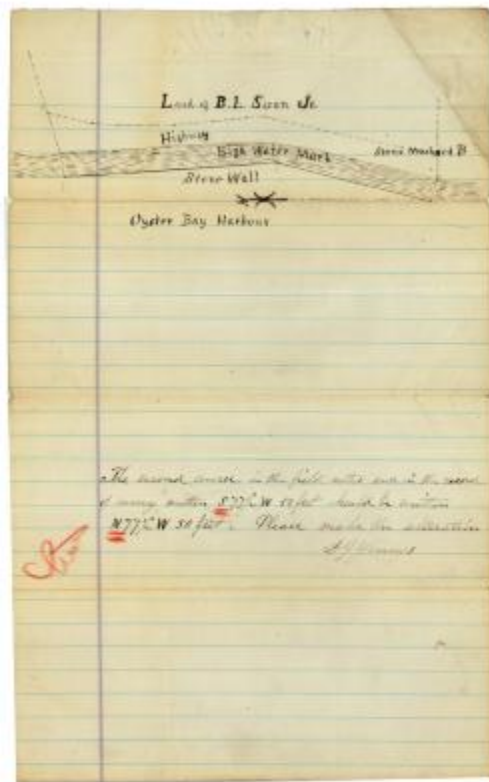 Land of B. L. Swan Jr.
Highway
High Water Mark
Stone Marked B
Stone Wall
Oyster Bay Harbour
The second course in the field notes and in the record
of survey written S 77½ W 50 feet should be written
N 77½ W 50 feet. Please make the alteration